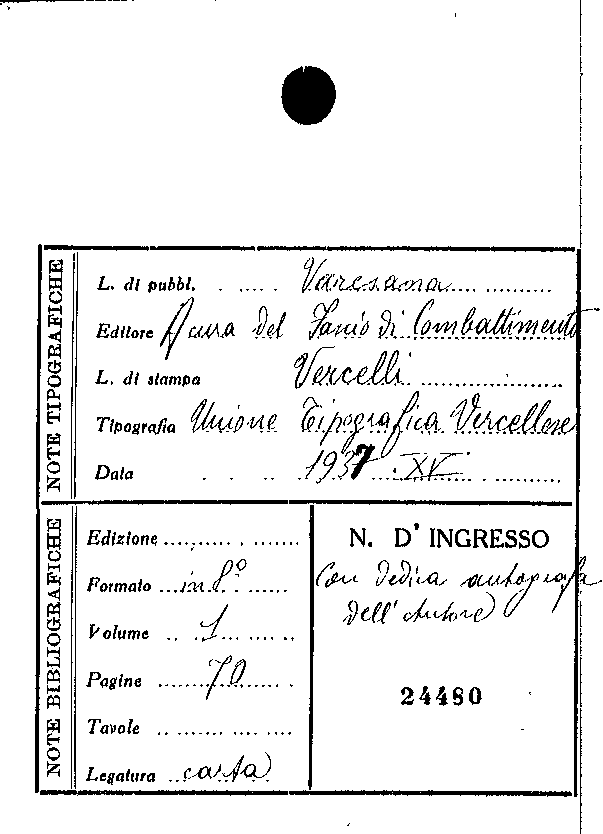 NOTE TIPOGRAFICHE
L. di pubbl. Varesana
Editore A cura del Fascio di Combattimento
L. di stampa Vercelli
Tipografia Unione Tipografica Vercellese
Data 1937 . XV
NOTE BIBLIOGRAFICHE
Edizione
Formato in 8º
Volume 1
Pagine 70
Tavole
Legatura carta
N. D' INGRESSO
Con dedica autografa
dell'Autore
24480